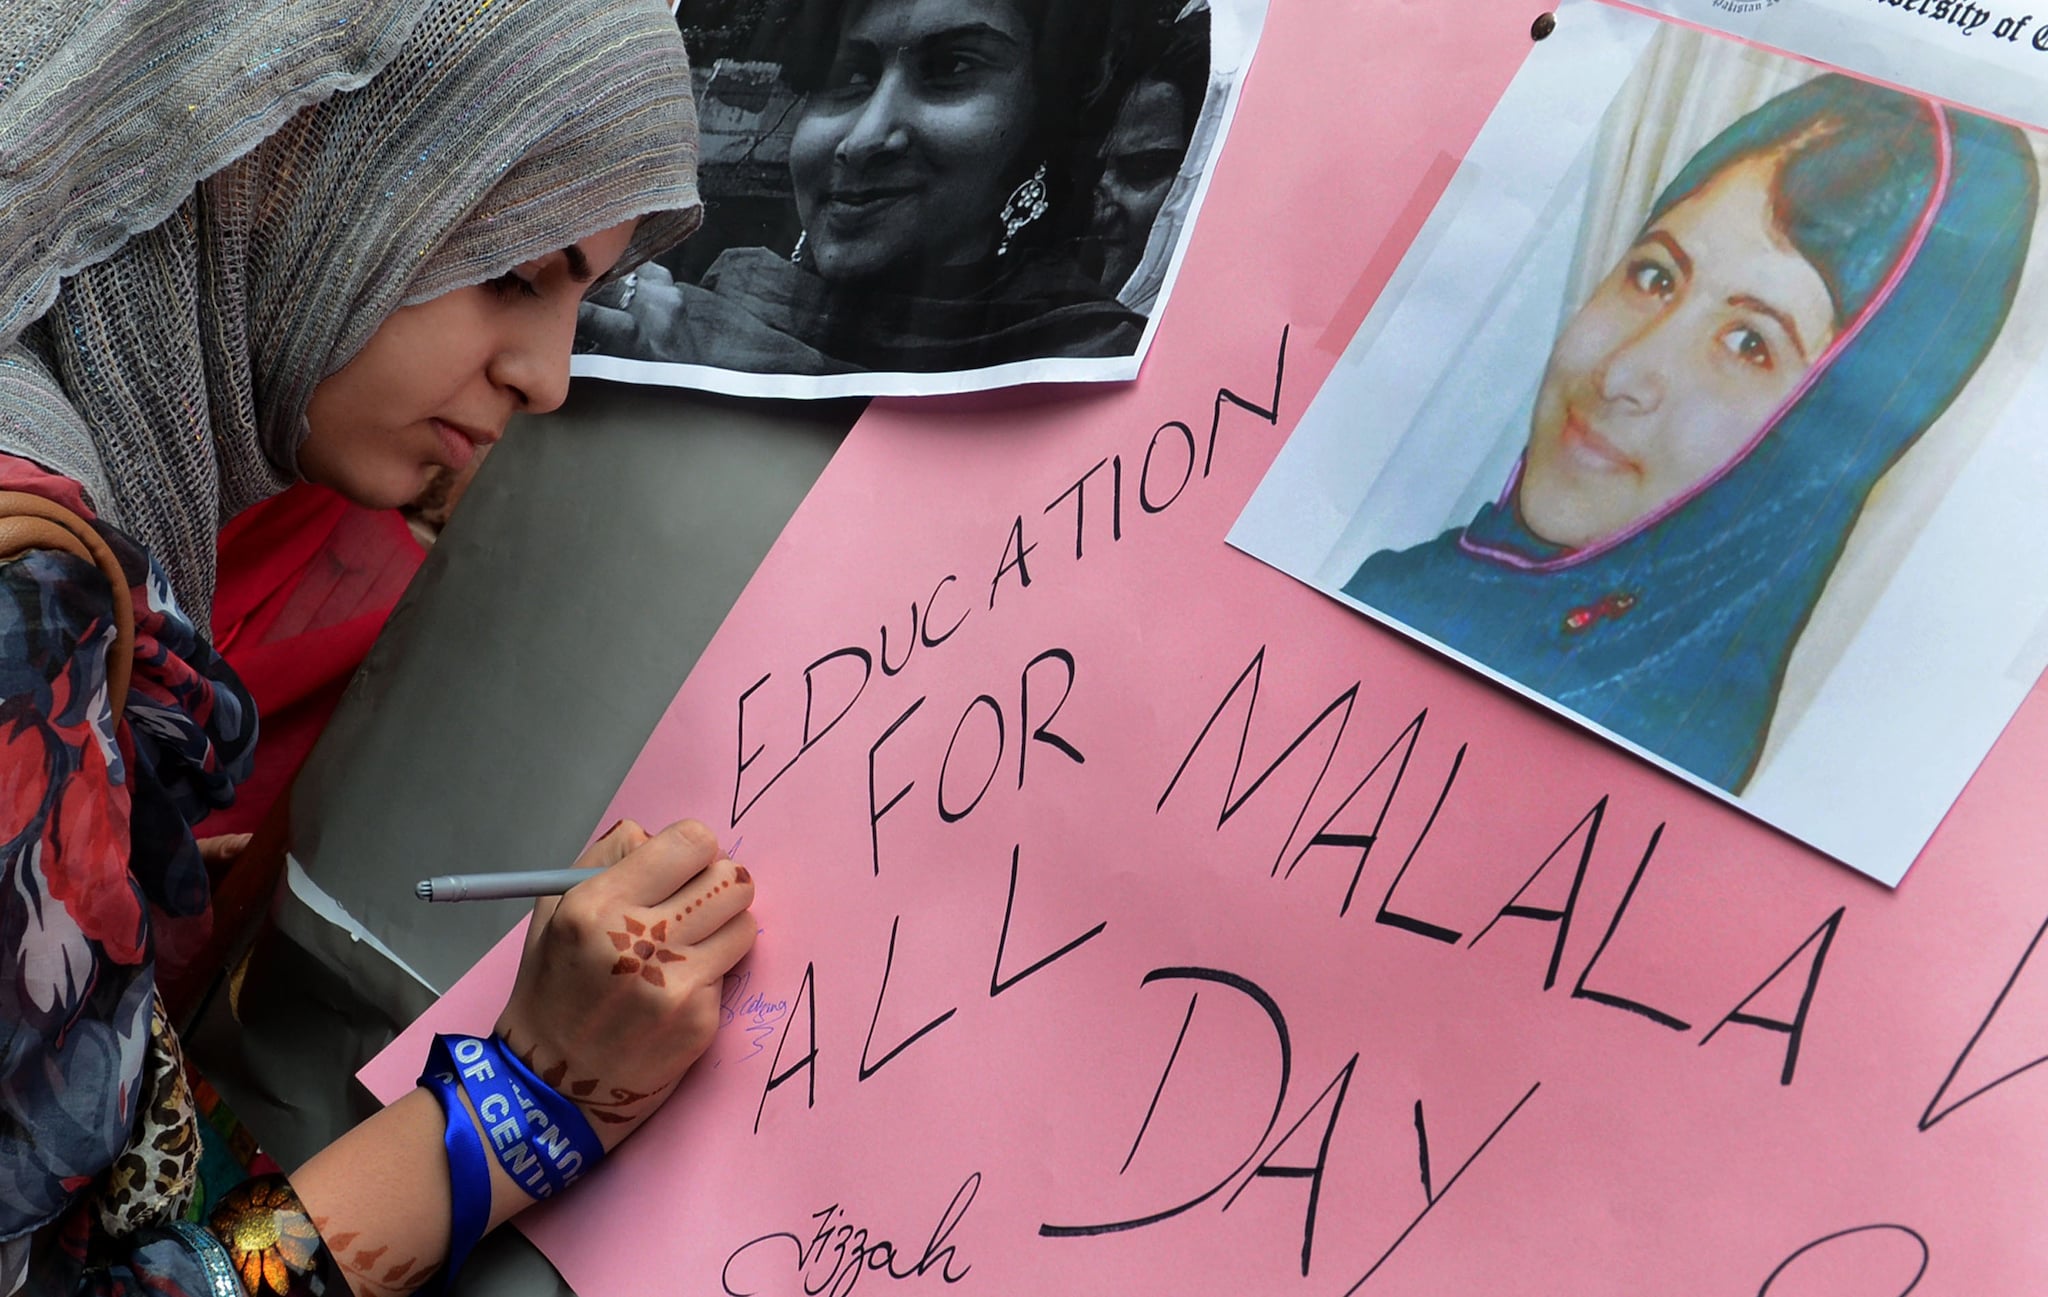 Pakistan
University of
EDUCATION
FOR
ALL
MALALA
DAY
Fizzah
OF CENT